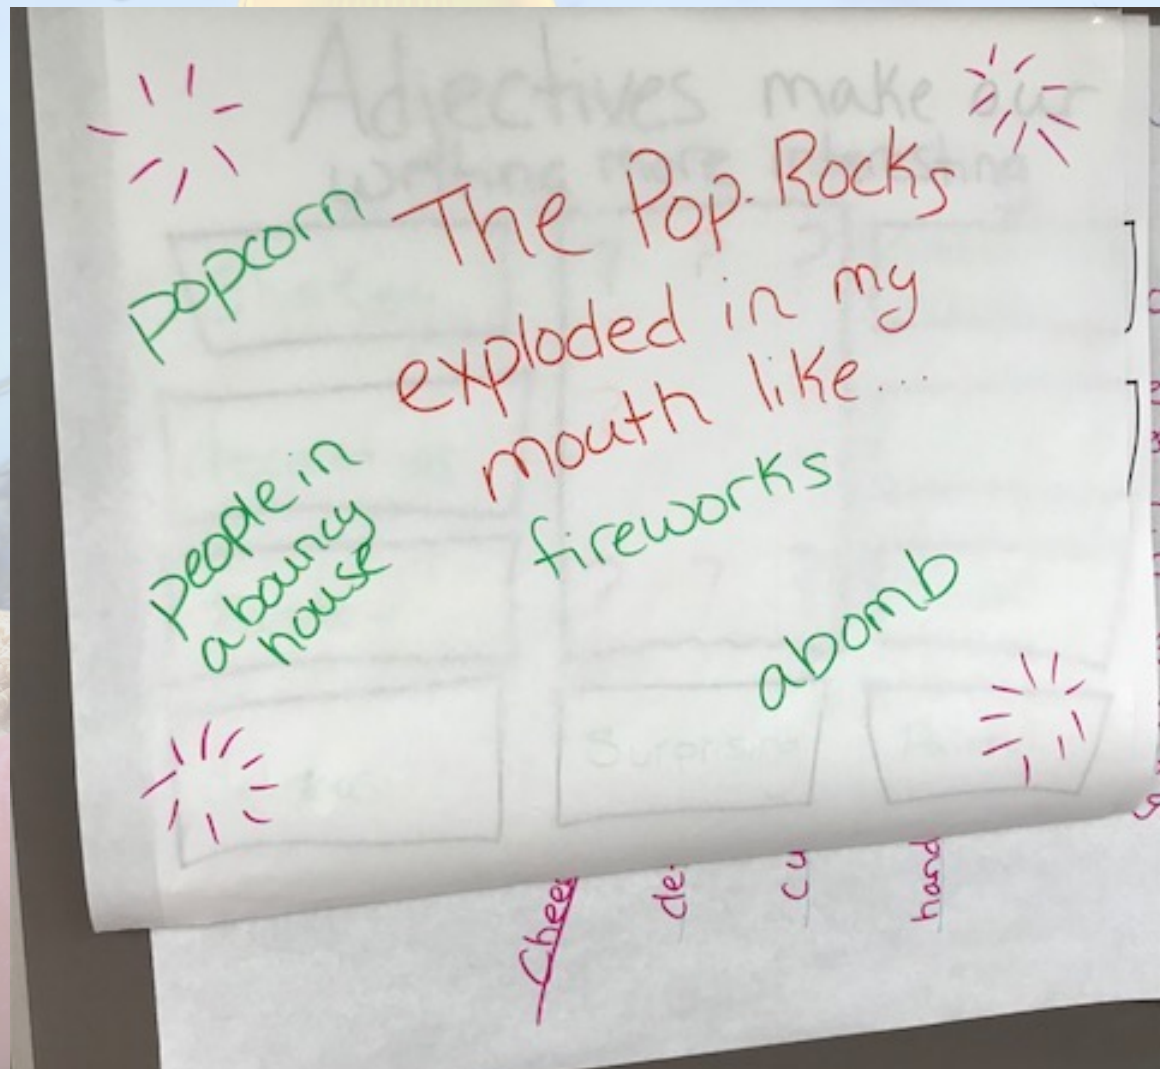 Adjectives make our
writing more interesting
The Pop Rocks
exploded in my
mouth like...
popcorn
people in
a bouncy
house
fireworks
a bomb
Surprising
hand